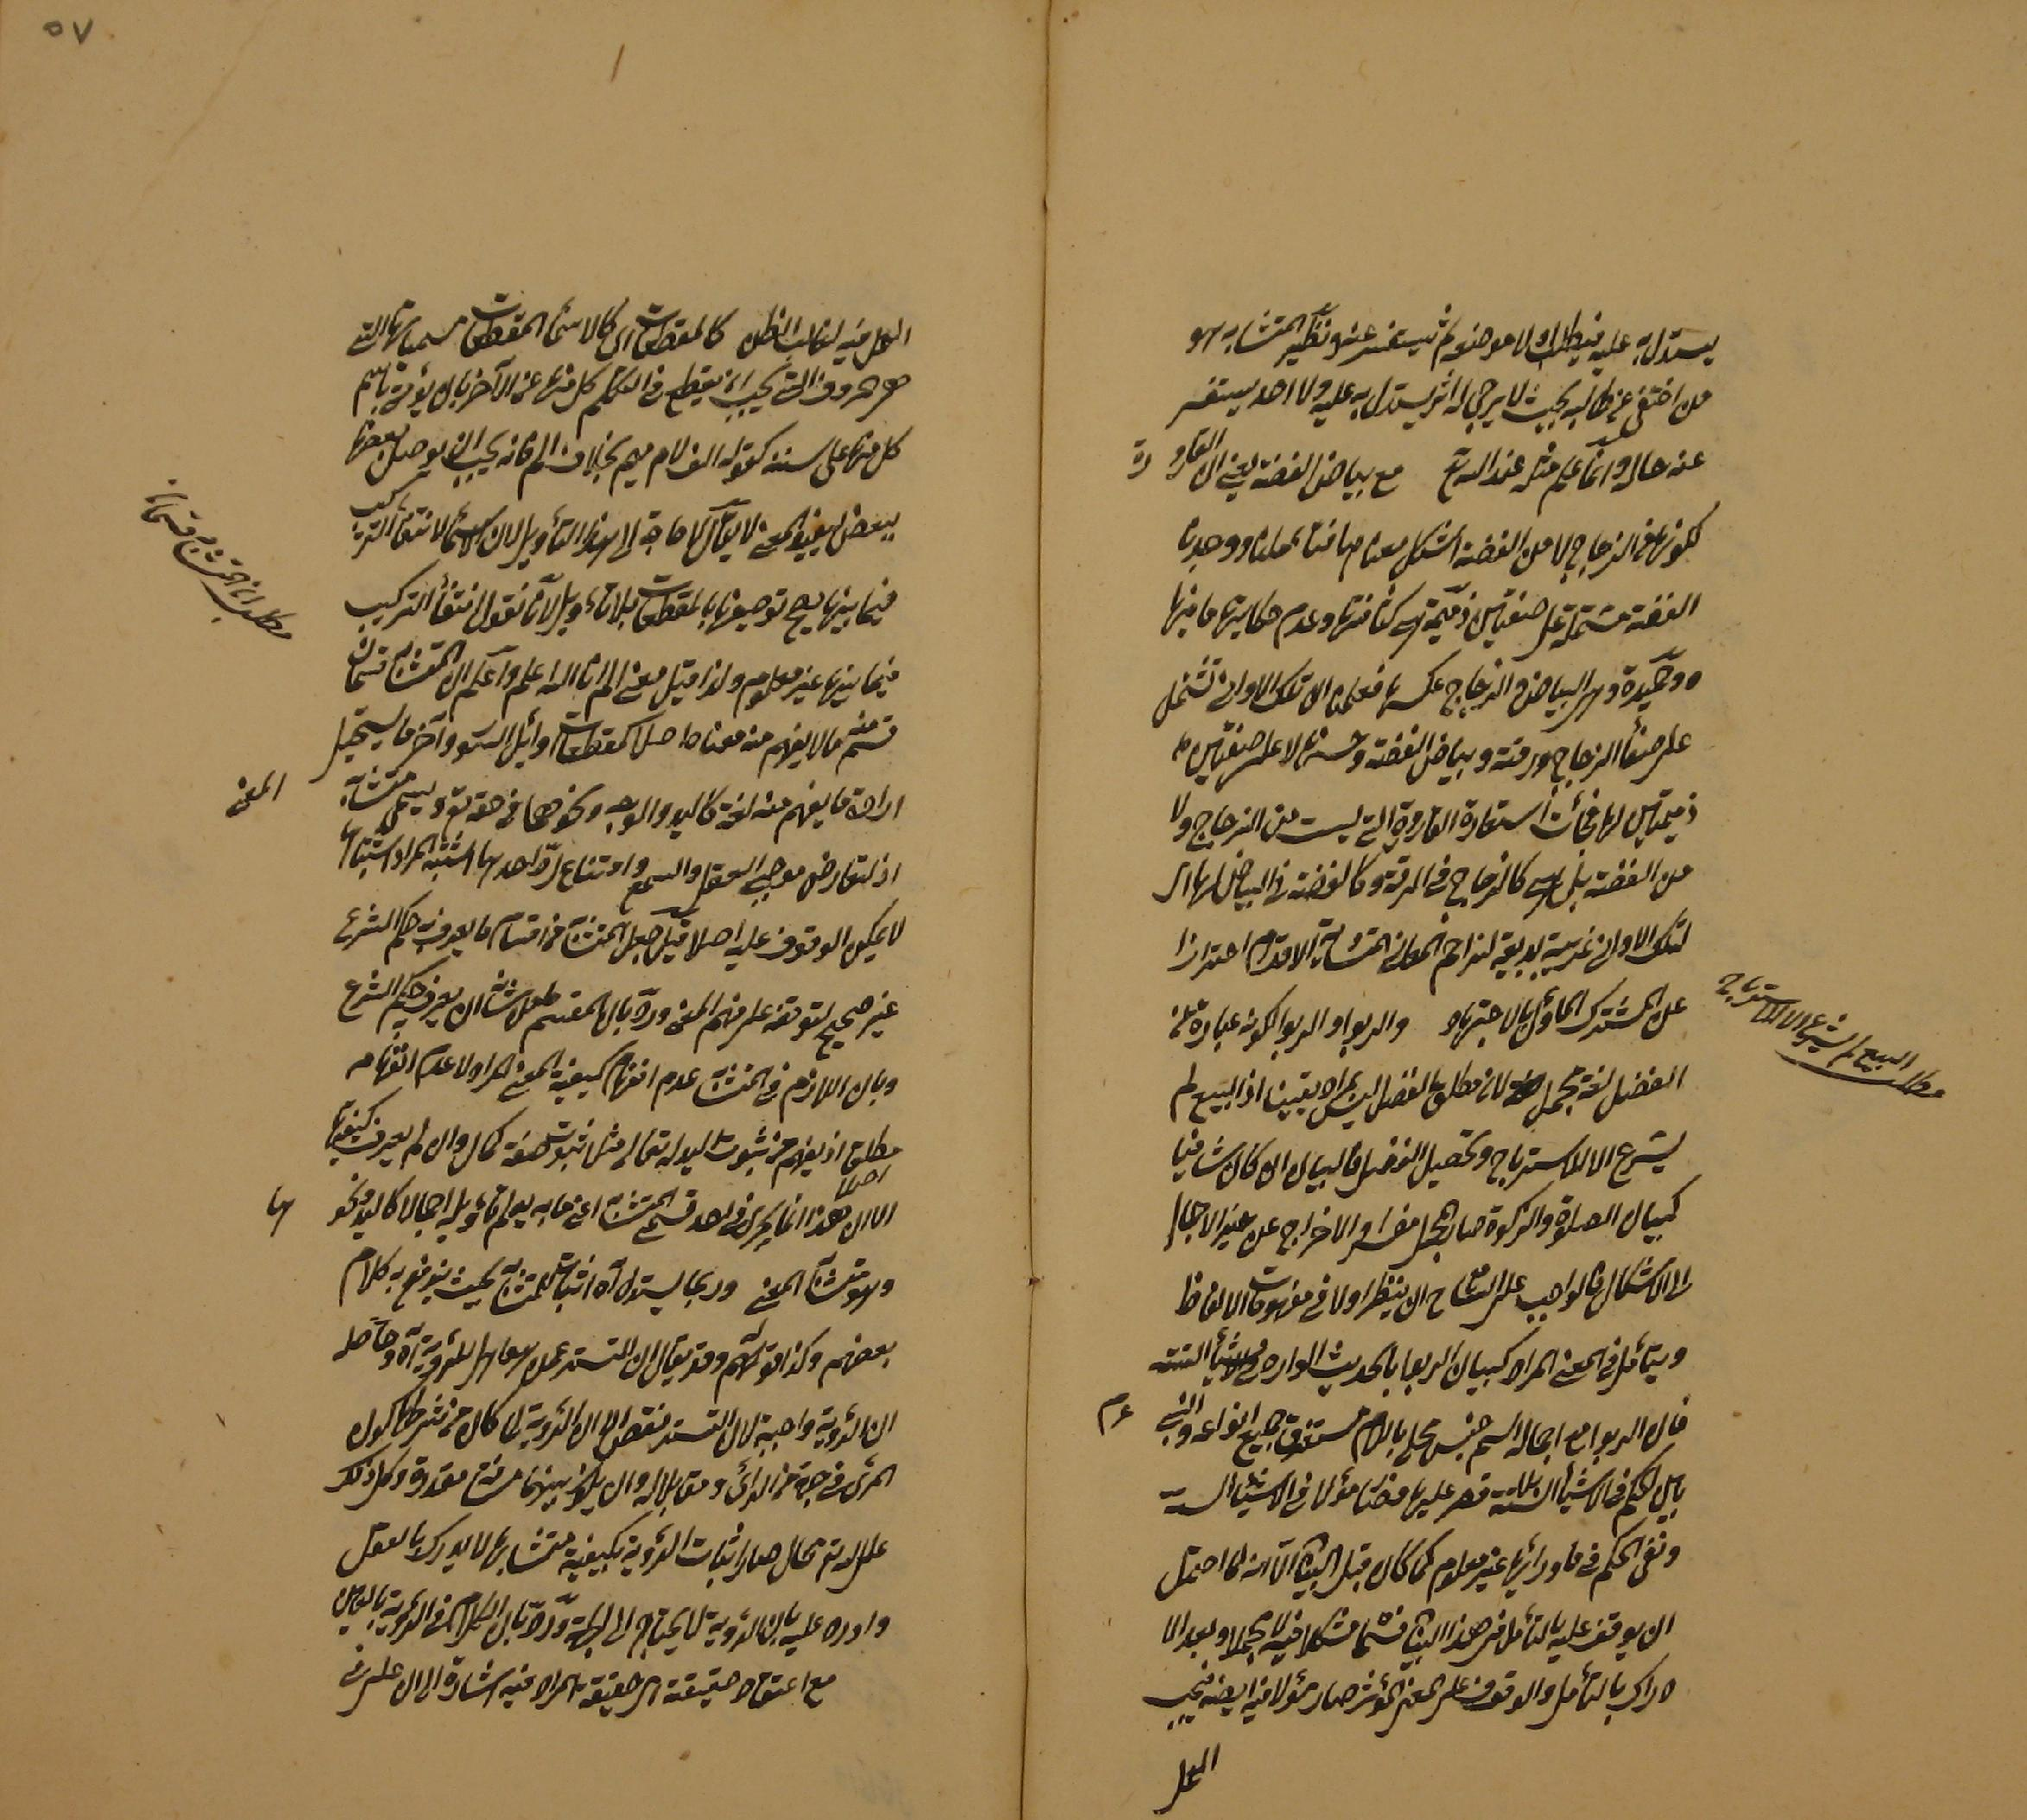 يستدل به عليه فيطلب اولا موضعه ثم يستفسر عنه ونظير المتشابه هو
من اختفى عن طالبه بحيث لا يرجى له اثر يستدل به عليه ولا احد يستفسر
عنه حاله وانما علم مثله عند الله تع مع بياض الفضة يعنى ان القارورة
لكونها من الزجاج لا من الفضة اشكل معناها فتأملنا ووجدنا
الفضة مشتملة على صفتين ذميمة هى كثافتها وعدم حكايتها ما فيها
وحميدة وهى البياض والزجاج عكسها فعلمنا ان تلك الاوانى تشتمل
على صفاء الزجاج ورقته وبياض الفضة وحسنها لا على صفتين
ذميمتين لها فجأت استعارة القارورة التى ليست من الزجاج ولا
من الفضة بل هى كالزجاج فى الرقة وكالفضة فى البياض لها اى
لتلك الاوانى غريبة بديعة لتزاحم المعانى المتساوية الاقدام احترازا
عن المشترك المأول بالاجتهاد والربوا والربوا لكونه عبارة عن
الفضل لغة مجمل لان مطلق الفضل ليس بمراد يقينا اذ البيع لم
يشرع الا للاسترباح وتحصيل الفضل فالبيان ان كان شافيا
كبيان الصلوة والزكوة صار المجمل مفسرا والاخراج عن حيز الاجمال
الى الاشكال فالواجب على السامع ان ينظر اولا فى مفهومات الالفاظ
ويتأمل فى المعنى المراد كبيان الربوا بالحديث الوارد فى الاشياء الستة
فان الربوا مع اجماله اسم جنس محلى باللام مستغرق جميع انواعه والنبى عم
بين الحكم فى الاشياء الستة قصر عليها فصار مؤلا فى الاشياء الستة
ونفى الحكم فى ماورائها غير معلوم كما كان قبل البيان الا انه لما احتمل
ان يوقف عليه بالتأمل فى هذا البيان فسمى مشكلا فيه لا مجملا وبعد الا
دراك بالتأمل والوقوف على المعنى المؤثر صار مؤلا فيه ايضا فيجب
العمل
مطلب البيع لم يشرع الا للاسترباح
٥٧
العمل فيه بغالب الظن كالمقطعات اى كالاسماء المقطعات مسمياتها التى
هى الحروف التى يجب ان يقطع فى التكلم كل منها عن الآخر بان يؤتى باسم
كل منها على سننه كقوله الف لام ميم بخلاف الم فانه يجب ان يوصل بعضها
ببعض ليفيد المعنى لا يقال لا حاجة الى هذا التأويل لان الاسماء لانتفاء التركيب
فيما بينها يصح توصيفها بالمقطعات بلا تأويل لانا نقول انتفاء التركيب
فيما بينها غير معلوم ولذا قيل معنى الم انا الله اعلم واعلم ان المتشابه قسمان
قسم منه ما لا يفهم منه معناه اصلا كمقطعات اوائل السور وآخر ما يستحيل
ارادة ما يفهم منه لغة كاليد والوجه ونحوهما فى حقه تع ويسمى متشابه المعنى
اذ لتعارض موجبى العقل والسمع وامتناع رد احدهما اشتبه المراد اشتباها
لا يمكن الوقوف عليه اصلا قيل جعل المتشابه من اقسام ما يعرف به حكم الشرع
غير صحيح لتوقفه على فهم المعنى ورد بان المقسم ما من شانه ان يعرف به حكم الشرع
وبان اللازم فى المتشابه عدم افهام كيفية المعنى المراد لا عدم افهامه
مطلقا اذ يفهم من ثبوت اليد له تعالى مثلا ثبوت صفة كمال وان لم يعرف كيفيتها اصلا
الا ان هذا انما يجرى فى احد قسمى المتشابه اعنى ما به يعلم تأويله اجمالا كاليد ونحوها
وهو متشابه المعنى وربما يستدل آه اثبات للمتشابه بحيث يندفع به كلام
بعضهم وكذا قولهم وقد يقال ان التستر عمل آه وحاصله
ان الرؤية واجبة لان التستر نقص الا ان الرؤية لما كان من شرطها كون
المرئى فى جهة من الرائى ومقابلا له وان يكون بينهما مسافة مقدرة وكل ذلك
على الله تع محال صار اثبات الرؤية بكيفيته متشابها لا يدرك بالعقل
واورد عليه بان الرؤية لا يحتاج الى الجهة ورد بان الكلام فى الرؤية بالعين
مع اعتقاد حقيقته اى حقيقة المراد فيه اشارة الى ان على
مطلب ان المتشابه قسمان